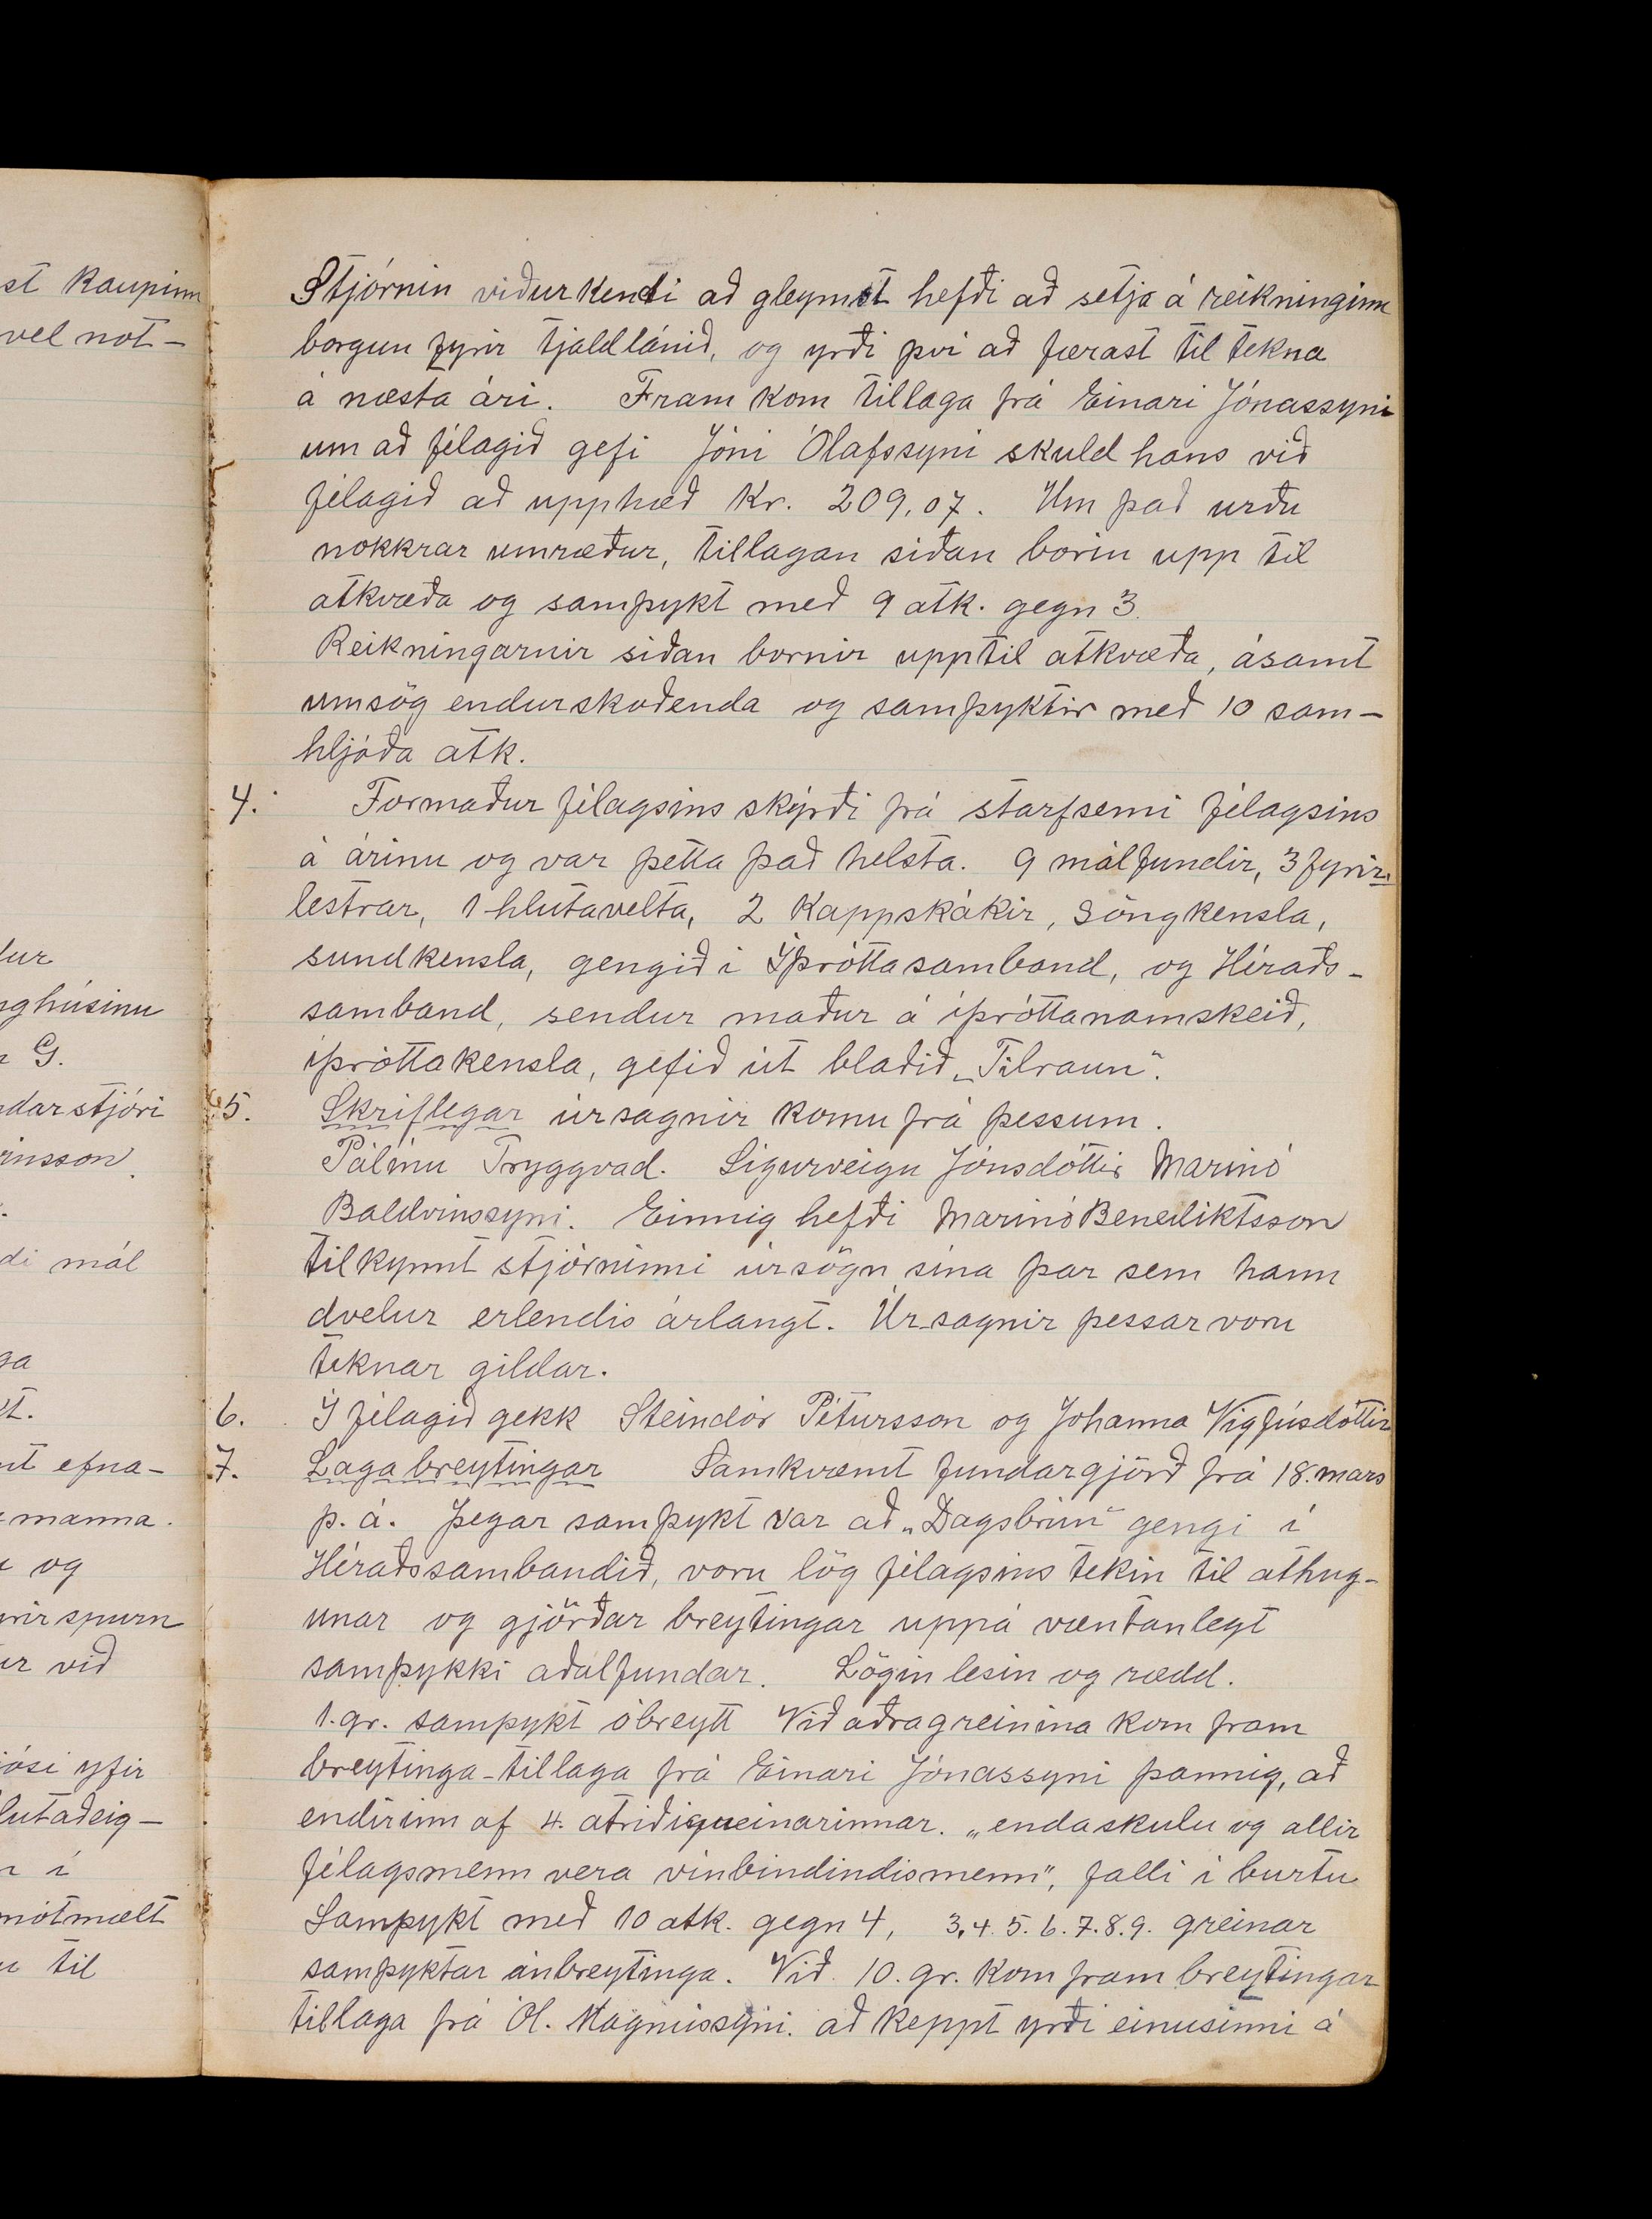 st kaupinn
vel not-
dur
nghúsinu
G.
ndarstjóri
insson
di mál
ga
kt.
nt efna-
manna.
og
rirspurn
ur við
jósi yfir
lutaðeig-
n í
mótmælt
u til
Stjórnin viðurkendi að gleymst hefði að setja á reikninginn
borgun fyrir tjaldlánið, og yrði því að færast til tekna
á næsta ári. Fram kom tillaga frá Einari Jónassyni
um að félagið gefi Jóni Ólafssyni skuld hans við
félagið að upphæð kr. 209,07. Um það urðu
nokkrar umræður, tillagan síðan borin upp til
atkvæða og samþykt með 9 atk. gegn 3.
Reikningarnir síðan bornir upp til atkvæða, ásamt
umsög endurskoðenda og samþyktir með 10 sam-
hljóða atk.
4. Formaður félagsins skýrði frá starfsemi félagsins
á árinu og var þetta það helsta. 9 málfundir, 3 fyrir-
lestrar, 1 hlutavelta, 2 kappskákir, söngkensla,
sundkensla, gengið í Íþróttasamband, og Héraðs-
samband, sendur maður á íþróttanamskeið,
íþróttakensla, gefið út blaðið „Tilraun".
5. Skriflegar úrsagnir komu frá þessum.
Pálínu Tryggvad. Sigurveigu Jónsdóttir Marinó
Baldvinssyni. Einnig hefði Marinó Benediktsson
tilkynnt stjórninni úrsögn sína þar sem hann
dvelur erlendis árlangt. Úr-sagnir þessar voru
teknar gildar.
6. Í félagið gekk Steindór Pétursson og Jóhanna Vigfúsdóttir
7. Lagabreytingar Samkvæmt fundargjörð frá 18. mars
þ. á. Þegar samþykt var að „Dagsbrún" gengi í
Héraðssambandið, voru lög félagsins tekin til athug-
unar og gjörðar breytingar uppá væntanlegt
samþykki aðalfundar. Lögin lesin og rædd.
1. gr. samþykt óbreytt Við aðragreinina kom fram
breytinga-tillaga frá Einari Jónassyni þannig, að
endirinn af 4. atriði greinarinnar. „enda skulu og allir
félagsmenn vera vínbindindismenn", falli í burtu
Samþykt með 10 atk. gegn 4, 3. 4. 5. 6. 7. 8. 9. greinar
samþyktar ánbreytinga. Við 10. gr. kom fram breytingar
tillaga frá Ól. Magnússyni. að keppt yrði einusinni á